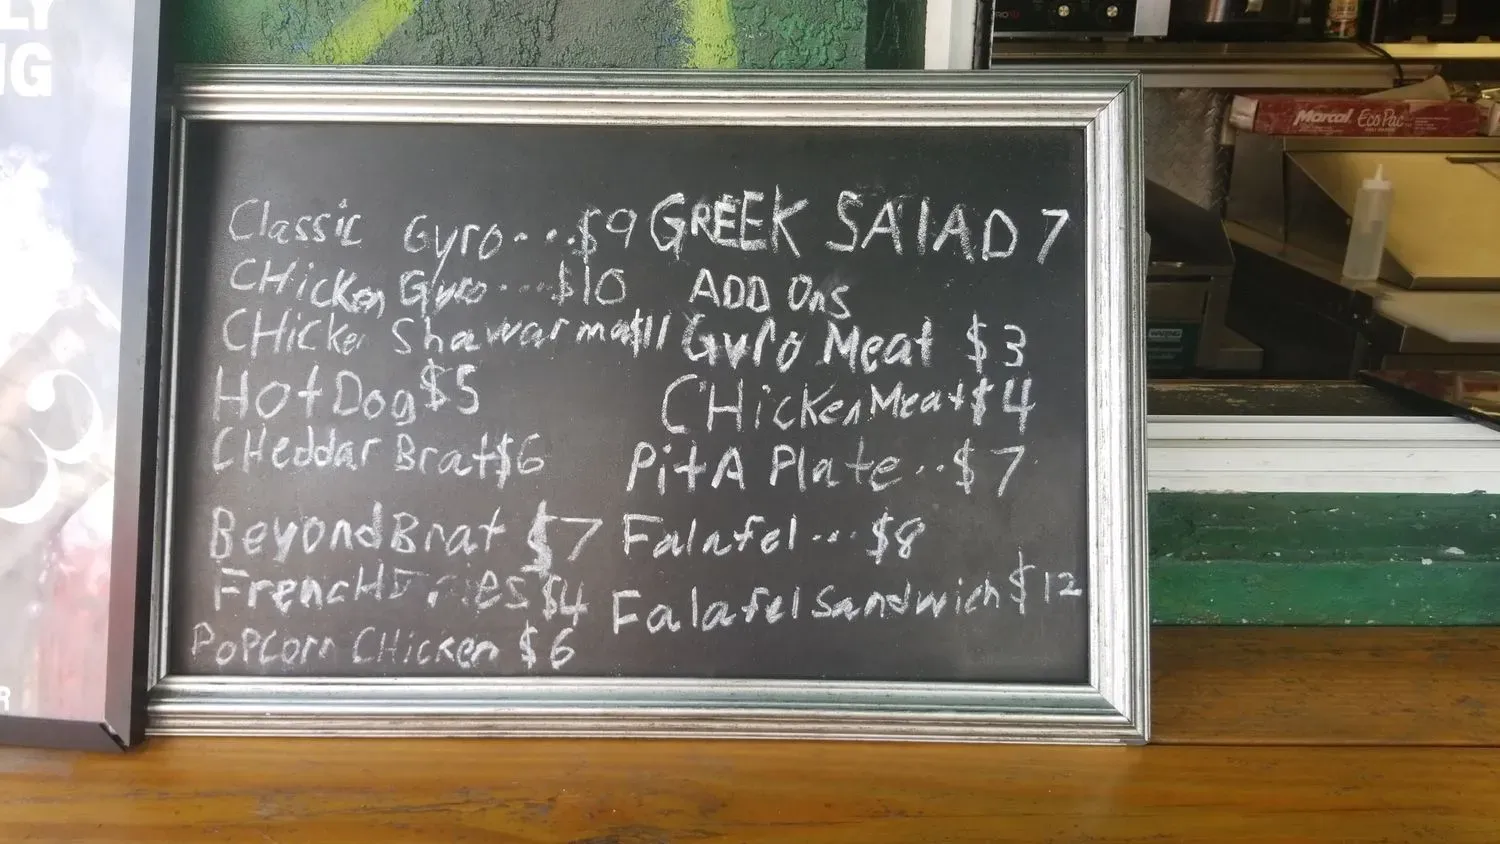 LY
NG
Classic Gyro...$9
CHicken Gyro....$10
CHicken Shawarma$11
HotDog$5
CHeddar Brat$6
BeyondBrat $7
FrencHFries $4
PoPCorn CHicken $6
GREEK SAlAD 7
ADD Ons
Gyro Meat $3
CHickenMeat$4
PitA Plate..$7
Falafel...$8
Falafel Sandwich $12
Marcal EcoPac
WARNING
3
R